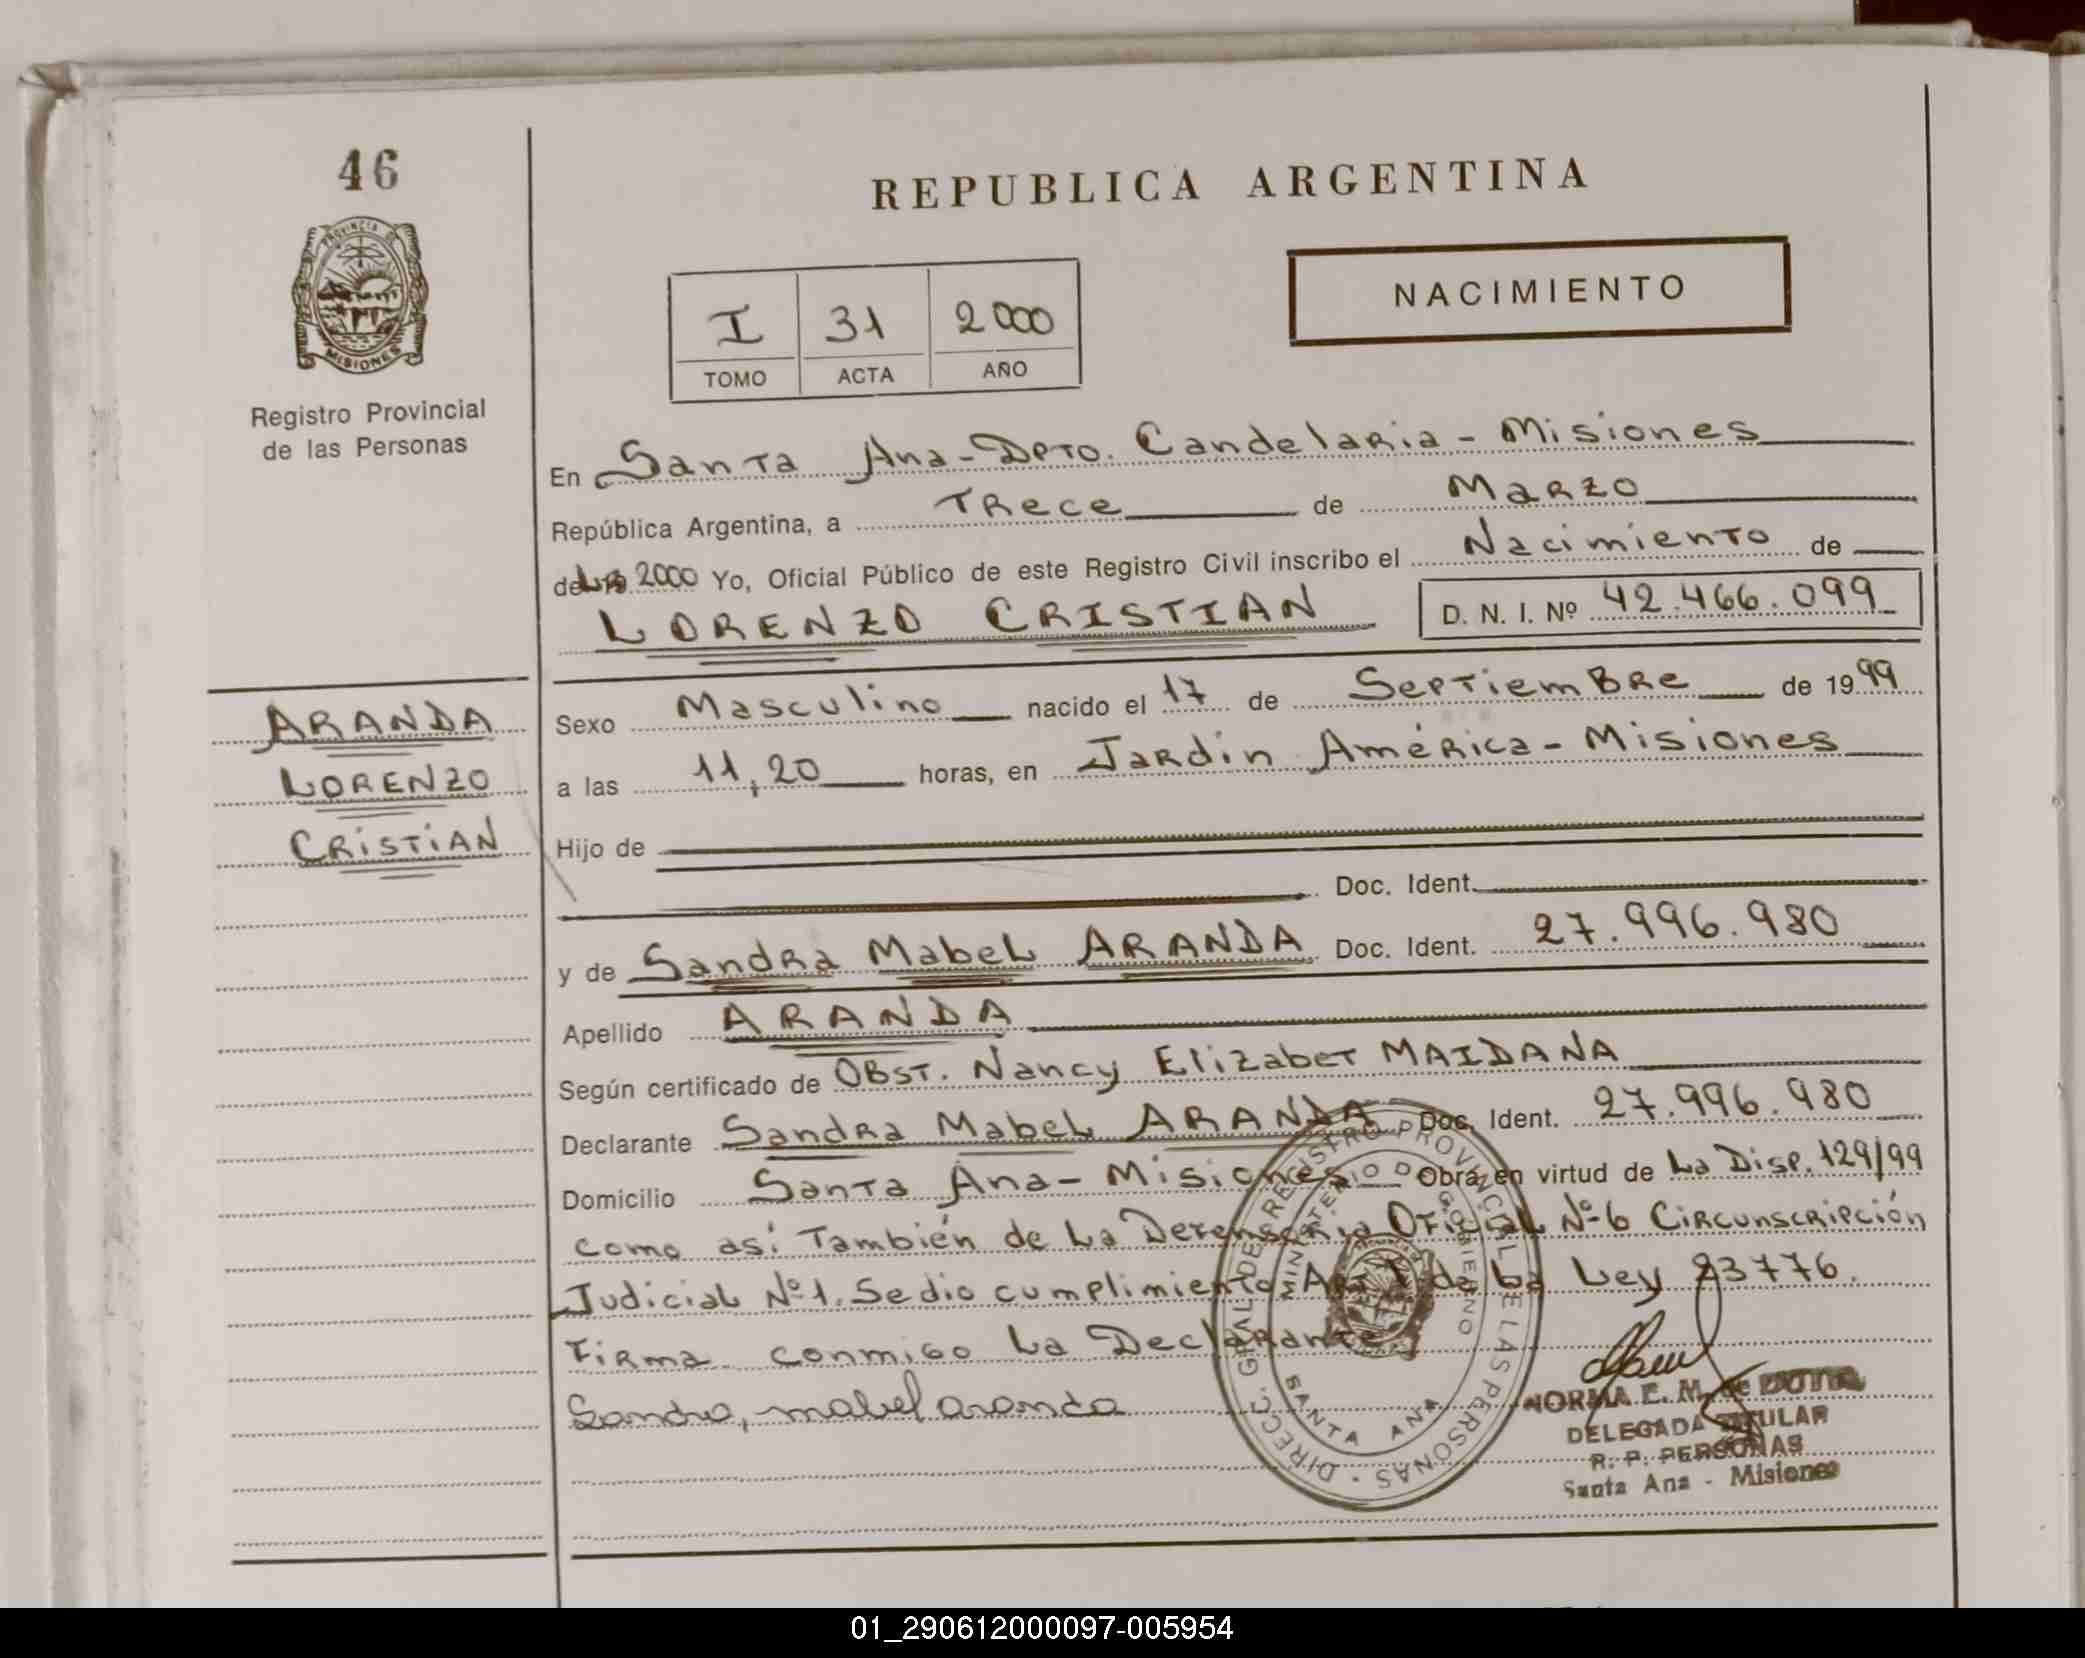 46
REPUBLICA ARGENTINA
PROVINCIA DE
MISIONES
Registro Provincial
de las Personas
NACIMIENTO
I 31 2000
TOMO ACTA AÑO
En Santa Ana - Dpto. Candelaria - Misiones
República Argentina, a Trece de Marzo
de 2000 Yo, Oficial Público de este Registro Civil inscribo el Nacimiento de
LORENZO CRISTIAN D. N. I. Nº 42.466.099
ARANDA
LORENZO
CRISTIAN
Sexo Masculino nacido el 17 de Septiembre de 1999
a las 11,20 horas, en Jardin América - Misiones
Hijo de
Doc. Ident.
y de Sandra Mabel ARANDA Doc. Ident. 27.996.980
Apellido ARANDA
Según certificado de Obst. Nancy Elizabet MAIDANA
Declarante Sandra Mabel ARANDA Doc. Ident. 27.996.980
Domicilio Santa Ana - Misiones Obra en virtud de La Disp. 129/99
como así También de La Defensoria Oficial Nº 6 Circunscripción
Judicial Nº 1. Se dio cumplimiento Art 1 de La Ley 23776.
Firma conmigo La Declarante
Sandra, mabel aranda
DIRECC. GRAL DE REGISTRO PROVINCIAL DE LAS PERSONAS
MINISTERIO DE GOBIERNO
SANTA ANA
NORMA E. M. de
DELEGADA TITULAR
R. P. PERSONAS
Santa Ana - Misiones
01_290612000097-005954